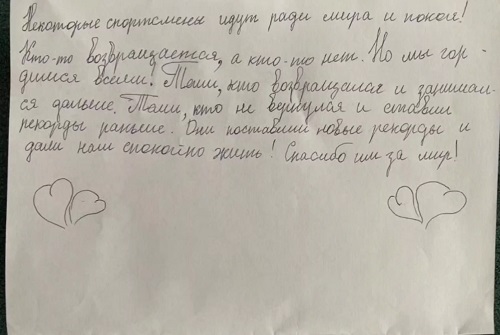 Некоторые спортсмены идут ради мира и покоя!
Кто-то возвращается, а кто-то нет. Но мы гор-
димся всеми! Теми, кто возвращался и занимал-
ся дальше. Теми, кто не вернулся и ставил
рекорды раньше. Они поставили новые рекорды и
дали нам спокойно жить! Спасибо им за мир!